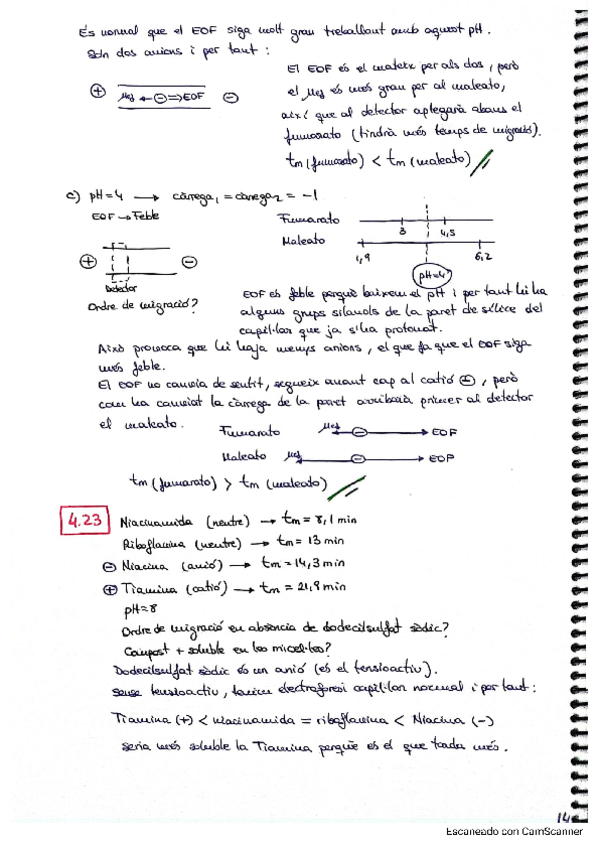 És normal que el EOF siga molt gran treballant amb aquest pH.
Són dos anions i per tant:
El EOF és el mateix per als dos, però
el μep és més gran per al maleato,
així que al detector aplegarà abans el
fumarato (tindrà més temps de migració).
tm (fumarato) < tm (maleato)
+ μep ← ⊖ ⇒ EOF −
c) pH=4 → càrrega1 = càrrega2 = −1
EOF → Feble
Fumarato 3 4,5
Maleato 1,9 6,2
pH=4
+ −
Detector
Ordre de migració?
EOF és feble perquè baixem el pH i per tant hi ha
alguns grups silanols de la paret de sílice del
capil·lar que ja s'ha protonat.
Això provoca que hi haja menys anions, el que fa que el EOF siga
més feble.
El EOF no canvia de sentit, segueix anant cap al catió ⊖, però
com ha canviat la càrrega de la paret arribarà primer al detector
el maleato.
Fumarato μep ← ⊖ → EOF
Maleato μep ← ⊖ → EOF
tm (fumarato) > tm (maleato)
4.23 Niacinamida (neutre) → tm = 8,1 min
Riboflavina (neutre) → tm = 13 min
⊖ Niacina (anió) → tm = 14,3 min
⊕ Tiamina (catió) → tm = 21,9 min
pH=8
Ordre de migració en absència de dodecilsulfat sòdic?
Compost + soluble en les micel·les?
Dodecilsulfat sòdic és un anió (és el tensioactiu).
Sense tensioactiu, tenim electroforesi capil·lar normal i per tant:
Tiamina (+) < niacinamida = riboflavina < Niacina (−)
Seria més soluble la Tiamina perquè és el que tarda més.
14
Escaneado con CamScanner